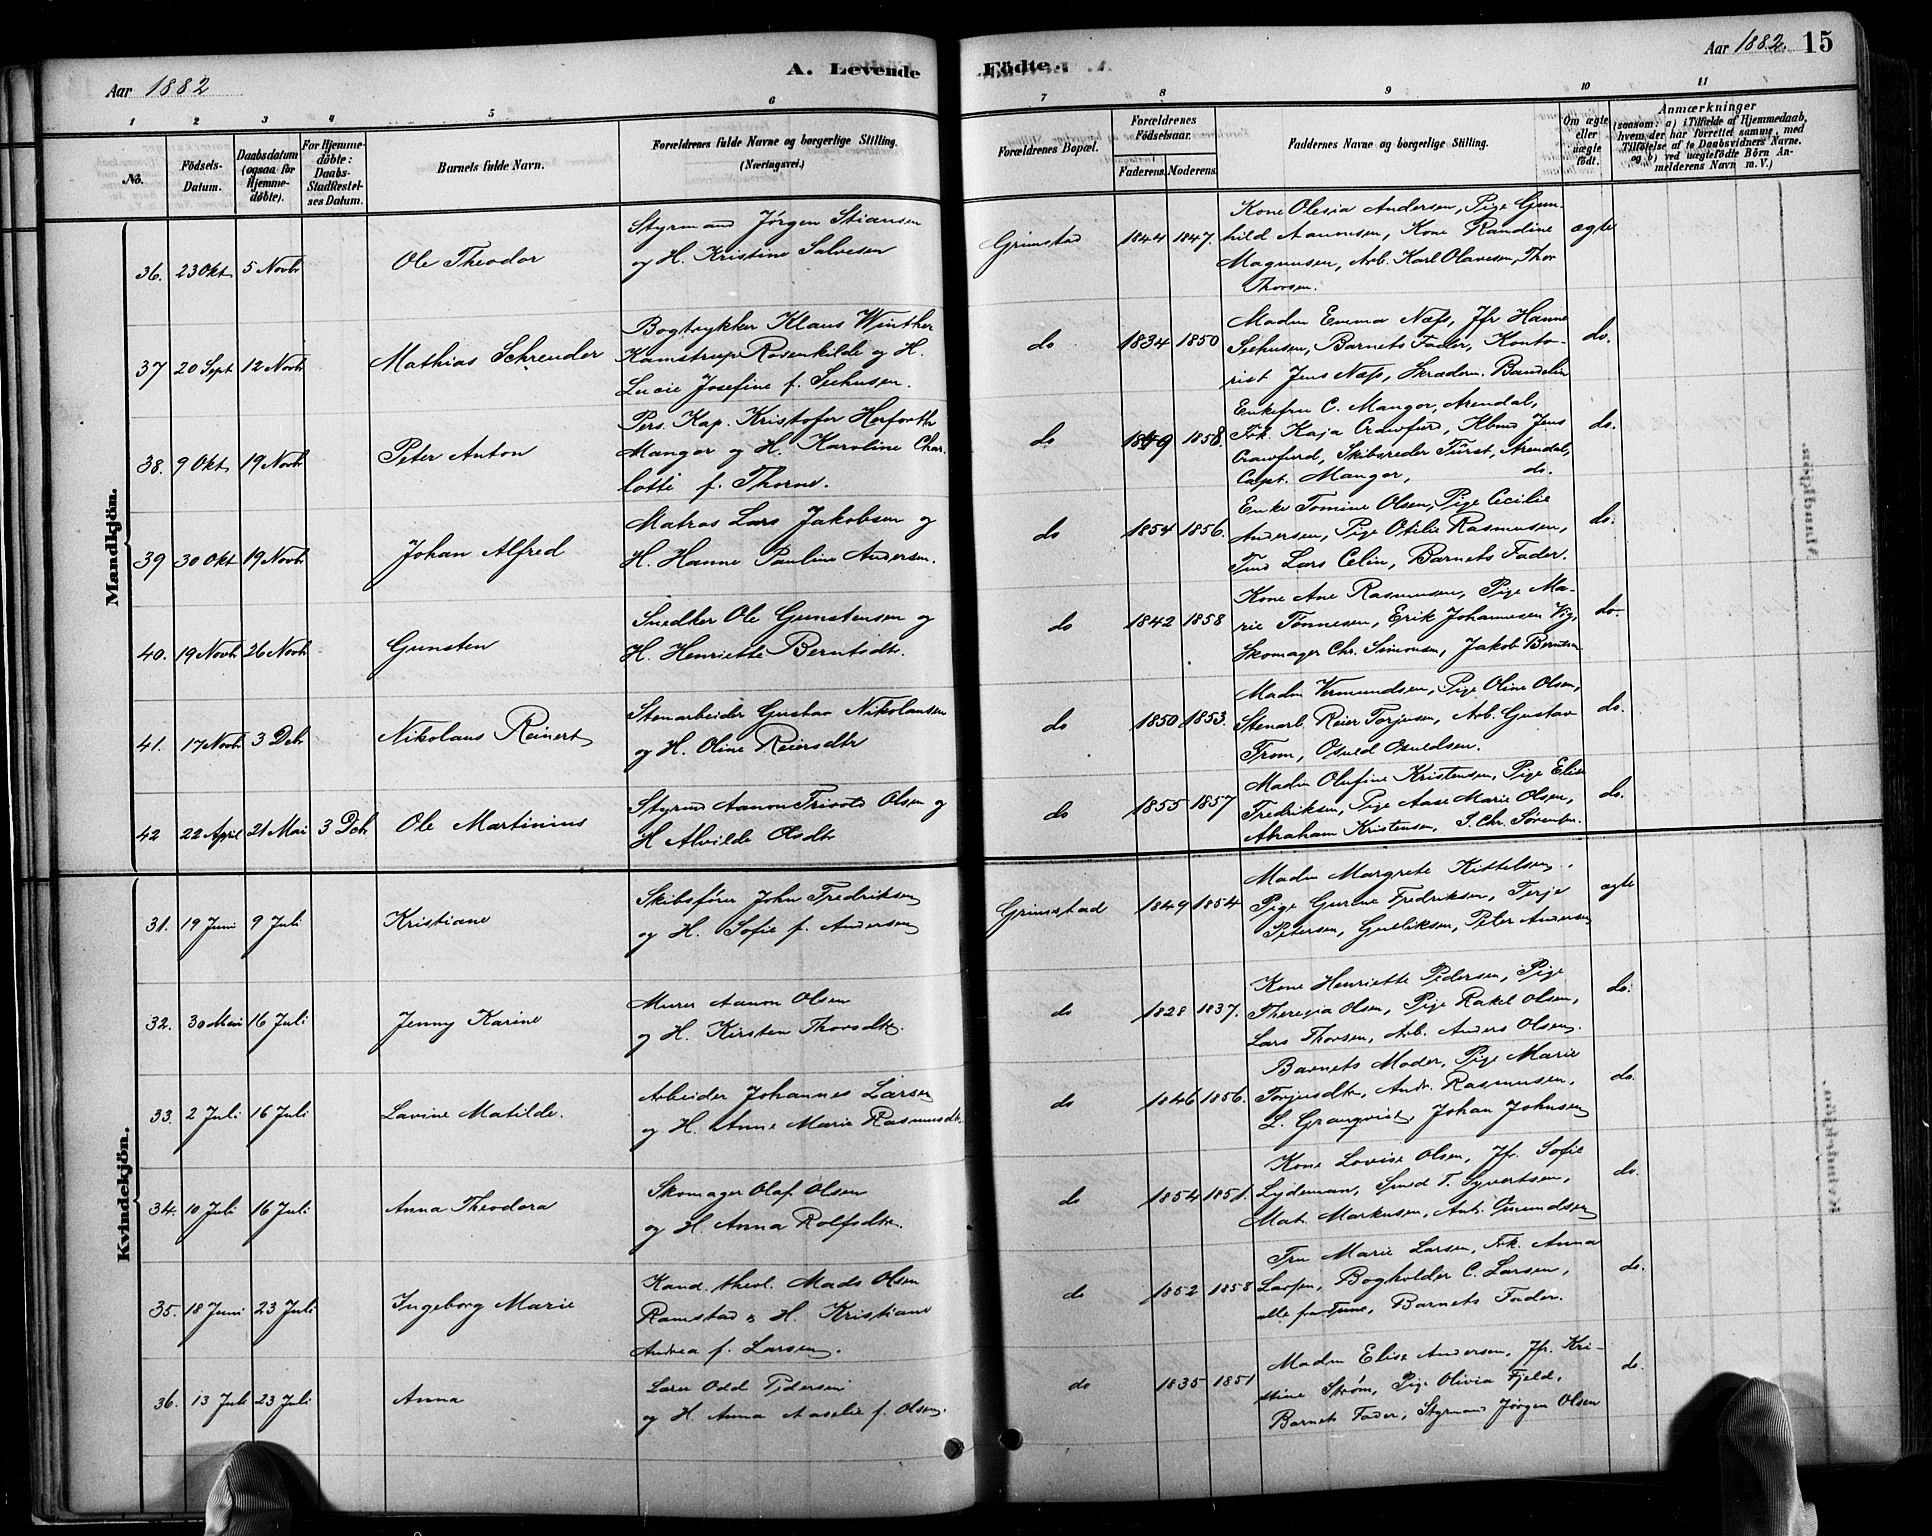 Aar 1882
A. Levende
Födte.
Aar 1882. 15
1 2 3 4 5 6 7 8 9 10 11
No.
Födsels-
Datum.
Daabsdatum
(ogsaa for
Hjemme-
döbte).
For Hjemme-
döbte:
Daabs-
Stadfæstel-
ses Datum.
Barnets fulde Navn.
Forældrenes fulde Navne og borgerlige Stilling.
(Næringsvei.)
Forældrenes Bopæl.
Forældrenes
Födselsaar.
Faderens. Moderens.
Faddernes Navne og borgerlige Stilling.
Om ægte
eller
uægte
födt.
Anmærkninger
(saasom: a) i Tilfælde af Hjemmedaab,
hvem der har forrettet samme, med
Tilföielse af to Daabsvidners Navne,
og b) ved uægtefödte Börn An-
melderens Navn m. V.)
Mandkjön.
36. 23 Okt 5 Novbr Ole Theodor
Styrmand Jörgen Stiansen
og H. Kristine Salvesen
Grimstad 1844 1847.
Kone Olesia Andersen, Pige Gun-
hild Aanesen, Kone Randine
Magnusen, Arb. Karl Olavesen, Thor
Thorsen.
ægte
37 20 Sept 12 Novbr Mathias Schreuder
Bogtrykker Klaus Winther
Kamstrup Rosenkilde og H.
Lucie Josefine f. Seehusen.
do 1834 1850
Madm Emma Næss, Jfr Hanne
Seehusen, Barnets Fader, Konto-
rist Jens Næss, Skræderm. Bandelin
do.
38. 9 Okt 19 Novbr Peter Anton
Pers. Kap. Kristofer Herforth
Mangor og H. Karoline Char-
lotte f. Thorne.
do 1849 1858.
Enkefru C. Mangor, Arendal,
Frk. Kaja Crawfurd, Kbmd Jens
Crawfurd, Skibsreder Fürst, Arendal,
Capt. Mangor, do.
do.
39 30 Okt 19 Novbr Johan Alfred
Matros Lars Jakobsen og
H. Hanne Pauline Andersen.
do 1854 1856.
Enke Tomine Olsen, Pige Cecilie
Andersen, Pige Otilie Rasmusen,
Lars Celin, Barnets Fader.
do.
40. 19 Novbr 26 Novbr Gunsten
Snedker Ole Gunstensen og
H. Henriette Berntsdtr.
do 1842 1858
Kone Ane Rasmusen, Pige Ma-
rie Tönnesen, Erik Johannesen Vig,
Skomager Chr. Simonsen, Jakob Berntsen
do.
41. 17 Novbr 3 Dcbr Nikolaus Reinert
Stenarbeider Gustav Nikolausen
og H. Oline Reiersdtr
do 1850 1853.
Madm Vermundsen, Pige Oline Olsen,
Stenarb. Reier Torjusen, Arb. Gustav
From, Osuld Osuldsen.
do.
42 22 April 21 Mai 3 Dcbr Ole Martinius
Styrmd Aanon Olsen og
H Alvilde Olsdtr
do 1855 1857
Madm Olufine Kristensen, Pige Elise
Fredriksen, Pige Aase Marie Olsen,
Abraham Kristensen, S. Chr.
do.
Kvindekjön.
31. 19 Juni 9 Juli Kristiane
Skibsförer John Fredriksen
og H. Sofie f. Andersen
Grimstad 1849 1854
Madm Margrete Kittelsen,
Pige Gurine Fredriksen, Terje
Petersen, Gulliksen, Peter Andersen
ægte
32. 30 Mai 16 Juli Jenny Karine
Murer Aanon Olsen
og H. Kirsten Thorsdtr.
do 1828 1837.
Kone Henriette Pedersen, Pige
Theresia Olsen, Pige Rakel Olsen,
Lars Thorsen, Arb. Anders Olsen.
do.
33. 2 Juli 16 Juli Lavine Matilde.
Arbeider Johannes Larsen
og H. Anne Marie Rasmusdtr.
do 1846 1856.
Barnets Moder, Pige Marie
Torjusdtr, Andr. Rasmusen,
L. Granqvist, Johan Johnsen
do.
34. 10 Juli 16 Juli Anna Theodora
Skomager Olaf Olsen
og H. Anna Rolfsdtr.
do 1854 1851.
Kone Lovise Olsen, Jf. Sofie
Lydeman, Smed T. Syvertsen,
Mat. Markusen, Ant. Gmundsen
do.
35. 18 Juni 23 Juli Ingeborg Marie
Kand. theol. Mads Olsen
Ramstad & H. Kristiane
Andrea f. Larsen.
do 1852 1858
Fru Marie Larsen, Frk. Anna
Larsen, Bogholder C. Larsen,
alle fra Tune, Barnets Fader.
do.
36. 13 Juli 23 Juli Anna
Lærer Odd Pedersen
og H. Anna Aaselie f. Olsen.
do 1835 1851
Madm Elise Andersen, Jfr. Kri-
stine Ström, Pige Olivia Fjeld,
Barnets Fader, Styrmand Jörgen Olsen
do.